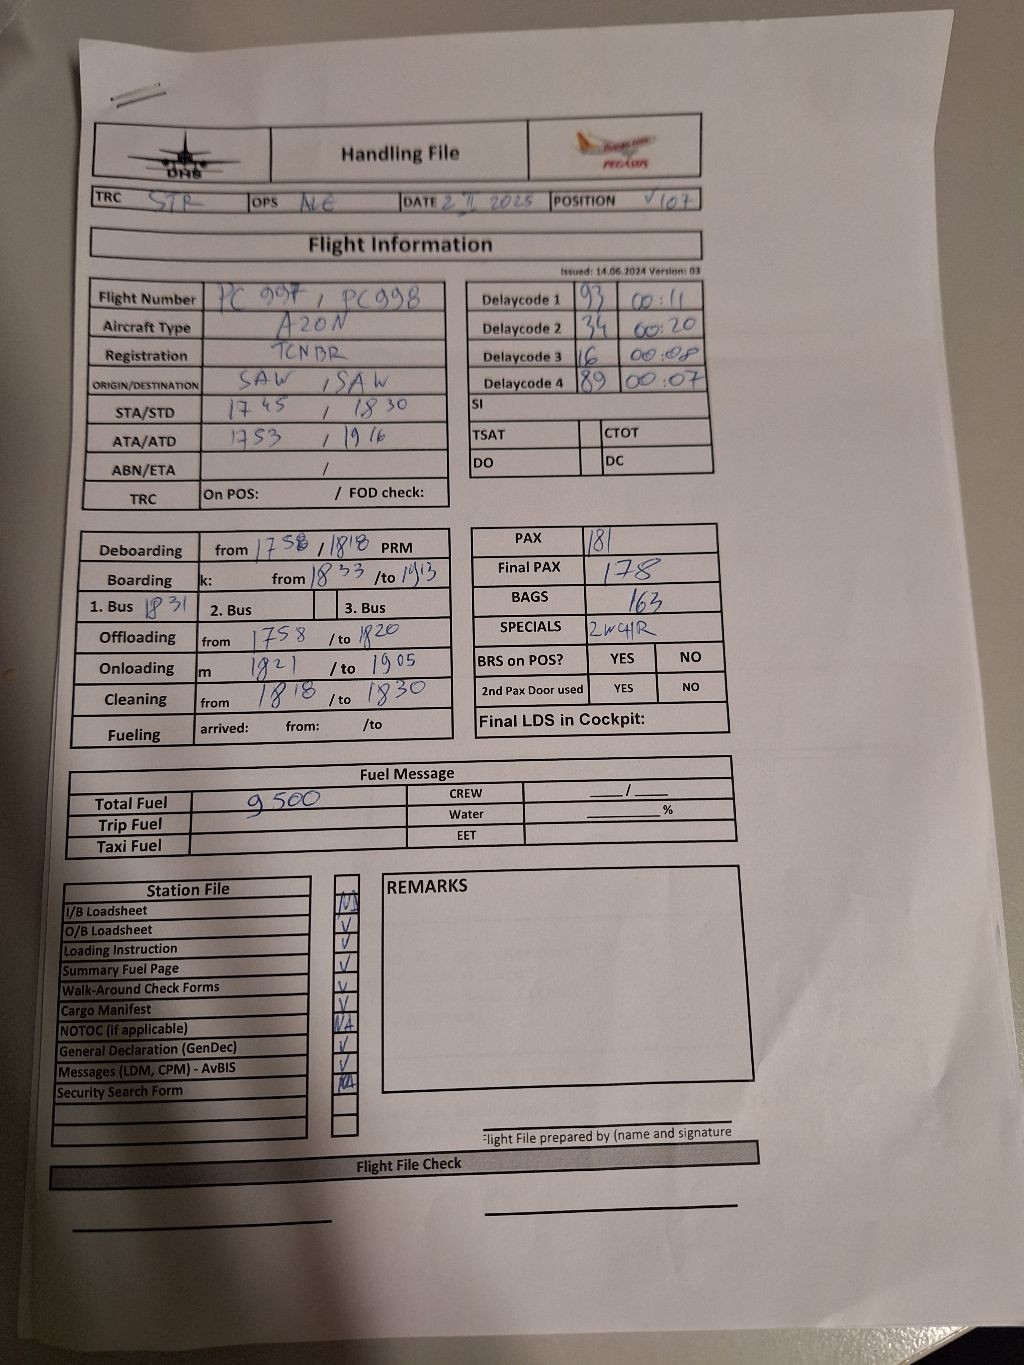 DHS
Handling File
PEGASUS
TRC STR OPS ALE DATE 2 II 2025 POSITION V107
Flight Information
Issued: 14.06.2024 Version: 03
Flight Number PC 997 , PC998
Aircraft Type A20N
Registration TCNBR
ORIGIN/DESTINATION SAW , SAW
STA/STD 17 45 / 18 30
ATA/ATD 1753 / 19 16
ABN/ETA /
TRC On POS: / FOD check:
Delaycode 1 93 00:11
Delaycode 2 34 00:20
Delaycode 3 16 00:08
Delaycode 4 89 00:07
SI
TSAT CTOT
DO DC
Deboarding from 1758 / 1818 PRM
Boarding k: from 1833 /to 1913
1. Bus 1831 2. Bus 3. Bus
Offloading from 1758 / to 1820
Onloading m 1821 / to 1905
Cleaning from 1818 / to 1830
Fueling arrived: from: /to
PAX 181
Final PAX 178
BAGS 163
SPECIALS 2WCHR
BRS on POS? YES NO
2nd Pax Door used YES NO
Final LDS in Cockpit:
Fuel Message
Total Fuel 9 500 CREW ____/____
Trip Fuel Water ________%
Taxi Fuel EET
Station File
I/B Loadsheet
O/B Loadsheet ✓
Loading Instruction ✓
Summary Fuel Page ✓
Walk-Around Check Forms ✓
Cargo Manifest ✓
NOTOC (if applicable) NA
General Declaration (GenDec) ✓
Messages (LDM, CPM) - AvBIS ✓
Security Search Form NA
REMARKS
Flight File prepared by (name and signature
Flight File Check